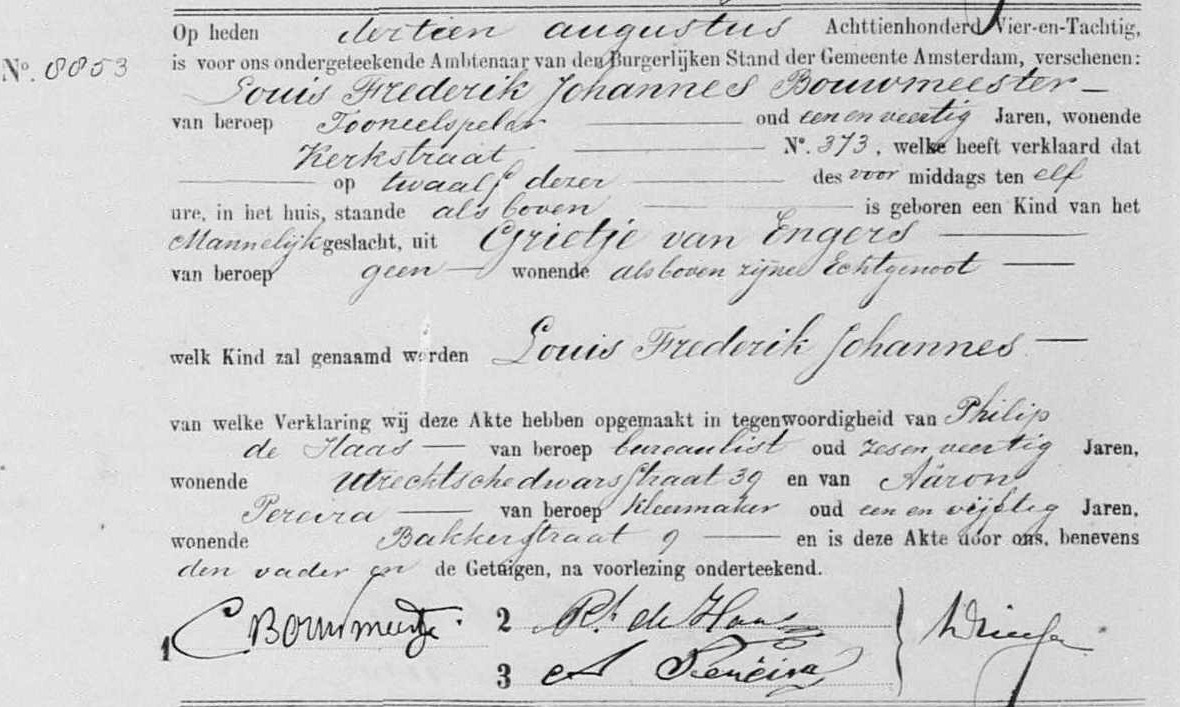 Op heden dertien augustus Achttienhonderd Vier-en-Tachtig,
No. 8853 is voor ons ondergeteekende Ambtenaar van den Burgerlijken Stand der Gemeente Amsterdam, verschenen:
Louis Frederik Johannes Bouwmeester
van beroep Tooneelspeler oud een en veertig Jaren, wonende
Kerkstraat No. 373, welke heeft verklaard dat
op twaalf dezer des voor middags ten elf
ure, in het huis, staande als boven is geboren een Kind van het
Mannelijk geslacht, uit Grietje van Engers
van beroep geen wonende als boven zijne Echtgenoot
welk Kind zal genaamd worden Louis Frederik Johannes
van welke Verklaring wij deze Akte hebben opgemaakt in tegenwoordigheid van Philip
de Haas van beroep bureaulist oud zes en veertig Jaren,
wonende Utrechtschedwarsstraat 39 en van Aäron
Pereira van beroep Kleermaker oud een en vijftig Jaren,
wonende Bakkerstraat 9 en is deze Akte door ons, benevens
den vader en de Getuigen, na voorlezing onderteekend.
1 Bouwmeester 2 Ph. de Haas
3 A Pereira